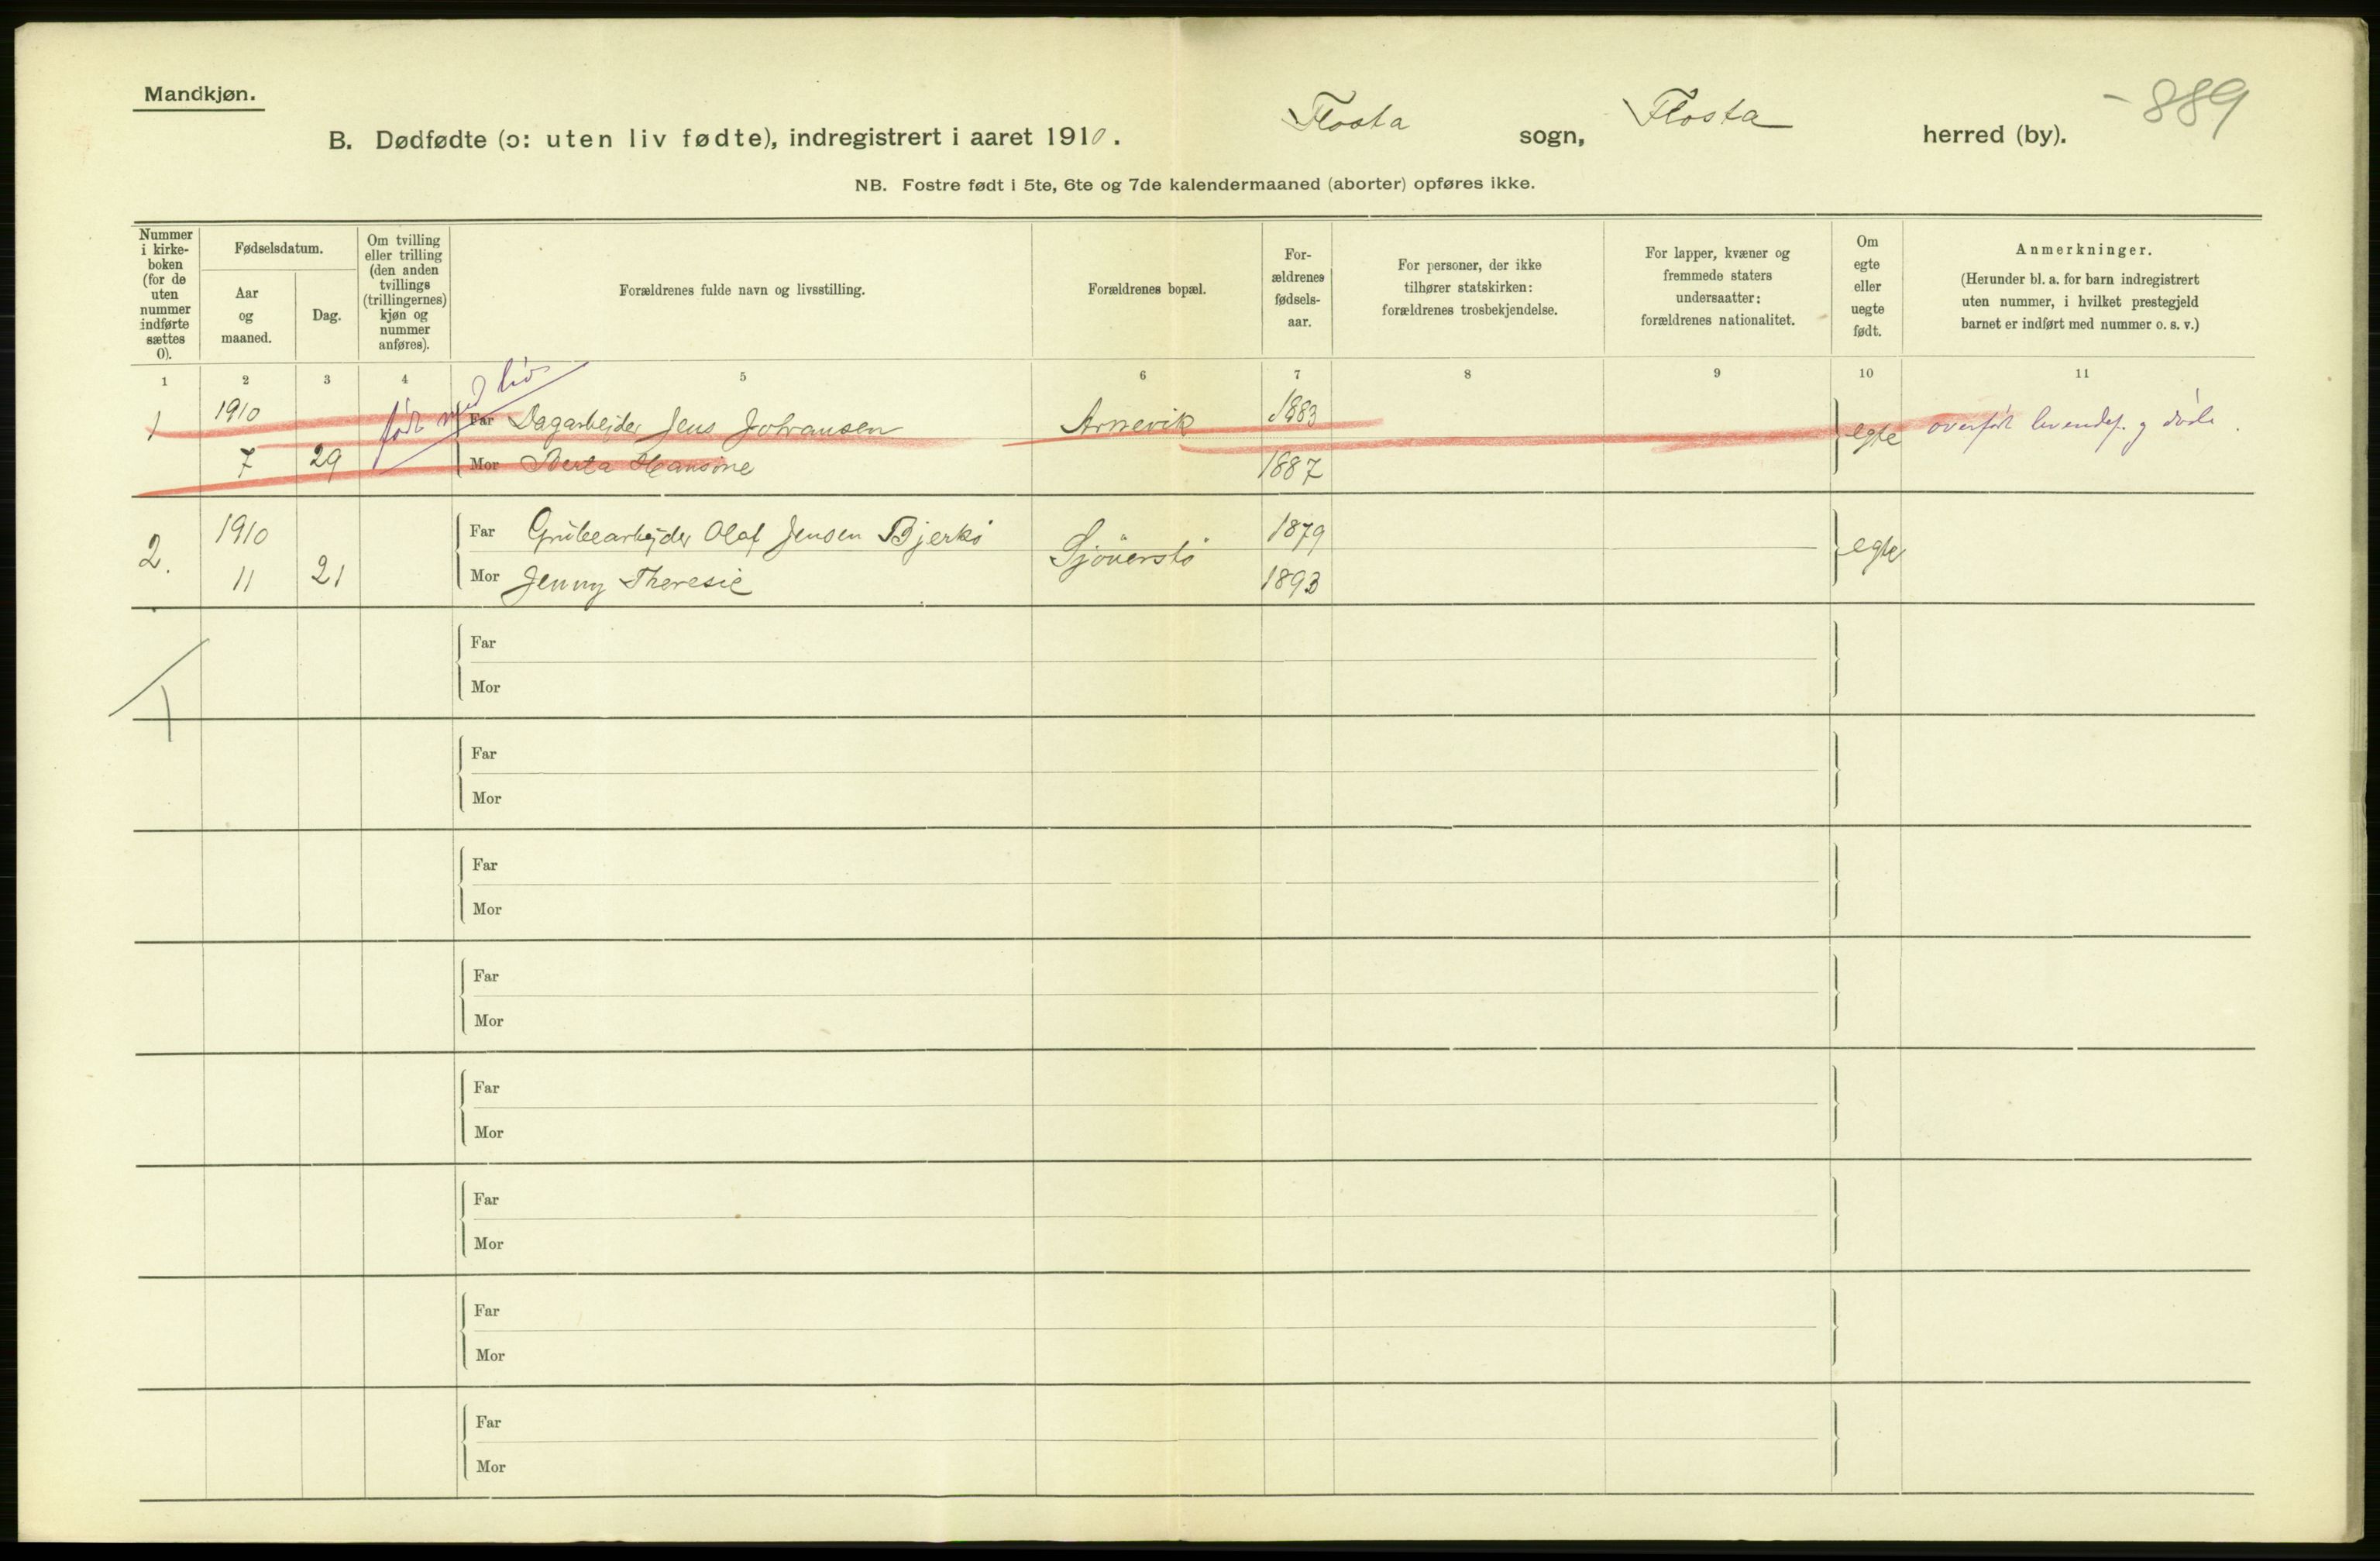 Mandkjøn.
B. Dødfødte (ɔ: uten liv fødte), indregistrert i aaret 1910. Flosta sogn, Flosta herred (by). - 889
NB. Fostre født i 5te, 6te og 7de kalendermaaned (aborter) opføres ikke.
Nummer
i kirke-
boken
(for de
uten
nummer
indførte
sættes
0).
Fødselsdatum.
Aar
og
maaned.
Dag.
Om tvilling
eller trilling
(den anden
tvillings
(trillingernes)
kjøn og
nummer
anføres).
Forældrenes fulde navn og livsstilling.
Forældrenes bopæl.
For-
ældrenes
fødsels-
aar.
For personer, der ikke
tilhører statskirken:
forældrenes trosbekjendelse.
For lapper, kvæner og
fremmede staters
undersaatter:
forældrenes nationalitet.
Om
egte
eller
uegte
født.
Anmerkninger.
(Herunder bl. a. for barn indregistrert
uten nummer, i hvilket prestegjeld
barnet er indført med nummer o. s. v.)
1 2 3 4 5 6 7 8 9 10 11
født med liv
1 1910 Far Dagarbejder Jens Johansen Arnevik 1883 egte overført levendef. g døde.
7 29 Mor Berta Hansine 1887
2. 1910 Far Grubearbejder Olaf Jensen Bjerkø 1879 egte
11 21 Mor Jenny Theresie 1893
Far
Mor
Far
Mor
Far
Mor
Far
Mor
Far
Mor
Far
Mor
Far
Mor
Far
Mor